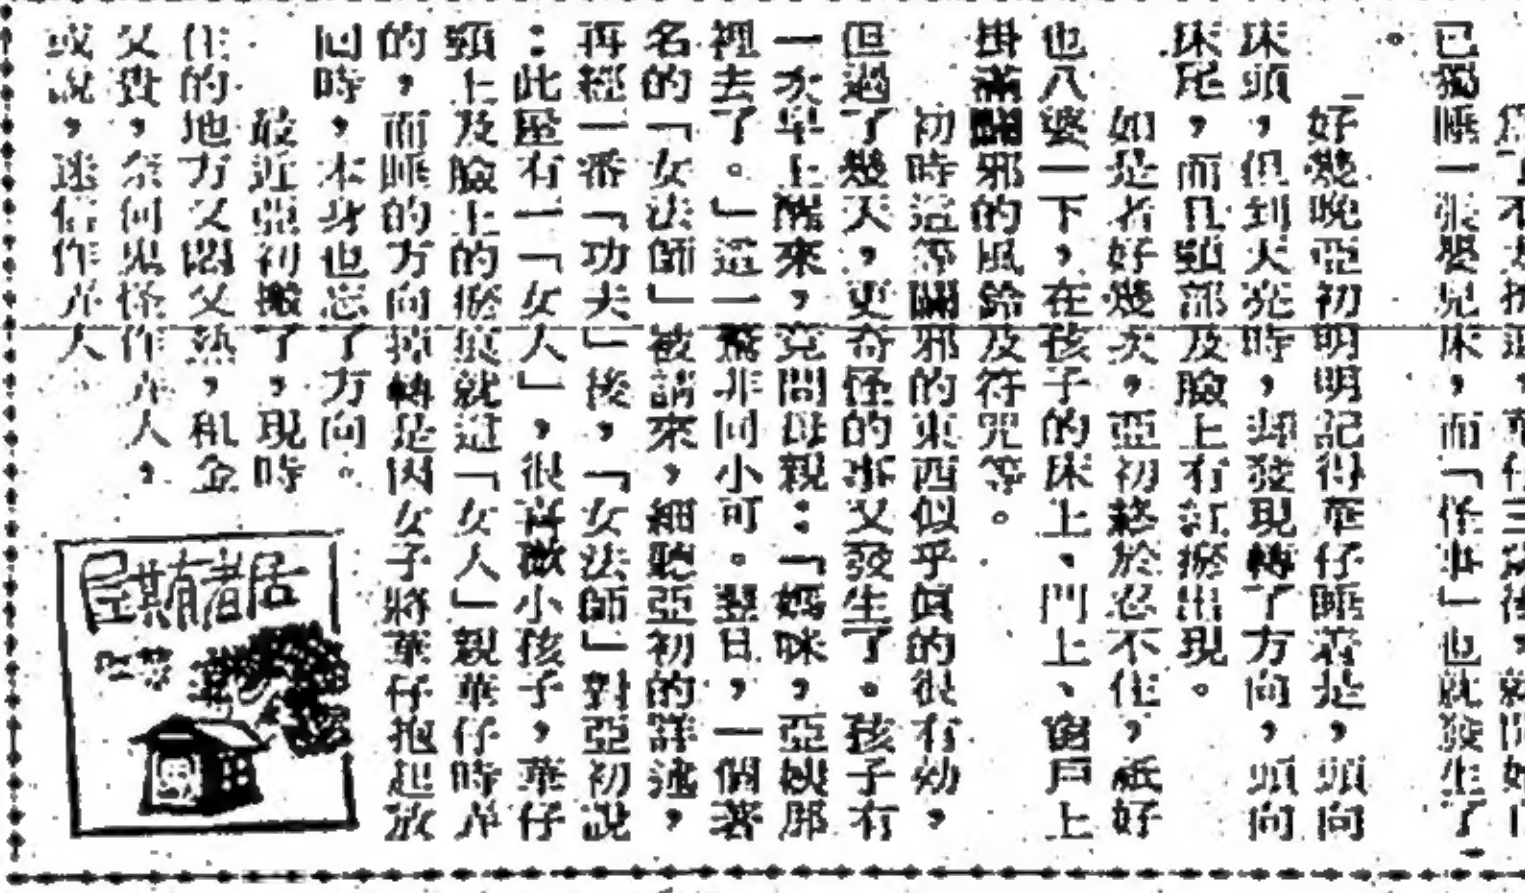 已獨睡一張嬰兒床，而「怪事」也就發生了
。
好幾晚亞初明明記得華仔睡着是，頭向
床頭，但到天亮時，却發現轉了方向，頭向
床尾，而且頸部及臉上有紅瘀出現。
如是者好幾次，亞初終於忍不住，祇好
也八婆一下，在孩子的床上、門上、窗戶上
掛滿闢邪的風鈴及符咒等。
初時這等闢邪的東西似乎眞的很有効，
但過了幾天，更奇怪的事又發生了。孩子有
一次早上醒來，竟問母親：「媽咪，亞嫂那
裡去了。」這一驚非同小可。翌日，一個著
名的「女法師」被請來，細聽亞初的詳述，
再經一番「功夫」後，「女法師」對亞初說
：此屋有一「女人」，很喜歡小孩子，華仔
頸上及臉上的瘀痕就這「女人」親華仔時弄
的，而睡的方向掉轉是因女子將華仔抱起放
回時，本身也忘了方向。
最近亞初搬了，現時
住的地方又悶又熱，租金
又貴，奈何鬼怪作弄人，
或說，迷信作弄人
居者有其屋